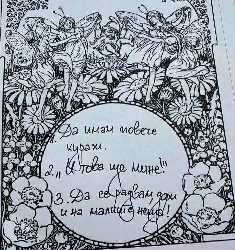 1. Да имам повече
кураж.
2. "И това ще мине!"
3. Да се радвам дори
и на малките неща!